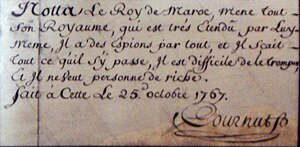 Notta Le Roy de Maroc mene tout
son Royaume, qui est trés Etendu, par Luy
Meme, Il a des Espions par tout, et Il scait
tout ce qu'il s'y passe, Il est difficile de le tromper
et Il ne veut personne de riche.
fait à Cette Le 25 octobre 1767.
Pournut